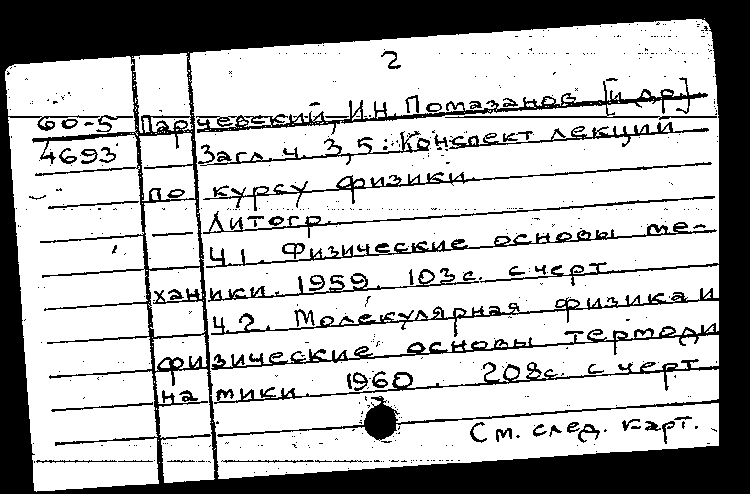 2
60-5 Парчевский, И.Н. Помазанов [и др.]
4693 Загл. ч. 3,5: Конспект лекций
по курсу физики.
Литогр.
Ч.1. Физические основы ме-
ханики. 1959. 103 с. с черт.
Ч.2. Молекулярная физика и
физические основы термоди
намики. 1960. 208 с. с черт
См. след. карт.